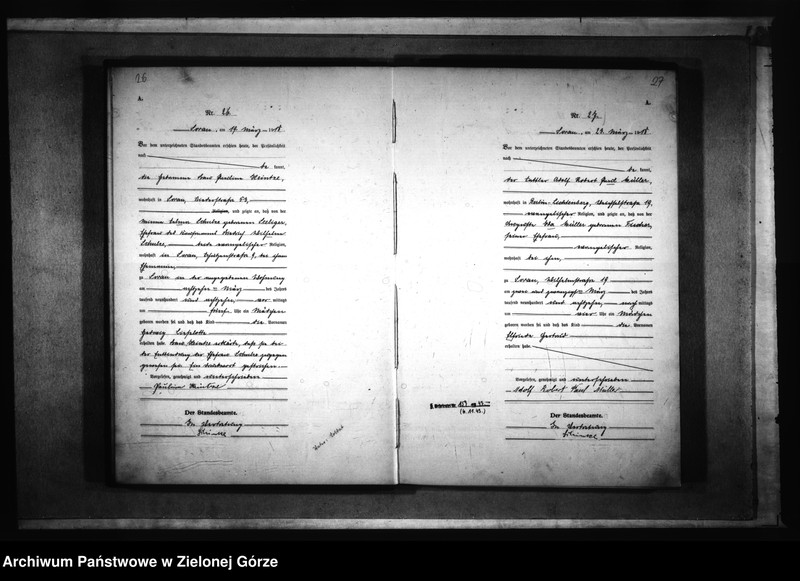 26
A.
Nr. 26.
Sorau, am 19. März 1918
Vor dem unterzeichneten Standesbeamten erschien heute, der Persönlichkeit
nach
be kannt,
die Hebamme Frau Pauline Heintze,
wohnhaft in Sorau, Niederstraße 53,
Religion, und zeigte an, daß von der
Minna Selma Schulze geborenen Seeliger,
Ehefrau des Wilhelm
Schulze, beide evangelischer Religion,
wohnhaft in Sorau, 9, bei ihrem
Ehemanne,
zu Sorau in der angegebenen Wohnung
am März des Jahres
tausend neunhundert und achtzehn, vor mittags
um Uhr ein Mädchen
geboren worden sei und daß das Kind die Vornamen
Hedwig Liselotte
erhalten habe. Frau Heintze erklärte, daß sie bei
der Entbindung der Ehefrau Schulze zugegen
gewesen sei. Ein Druckwort gestrichen.
Vorgelesen, genehmigt und unterschrieben
Pauline Heintze
Der Standesbeamte.
In Vertretung
27
A.
Nr. 27.
Sorau, am 23. März 1918
Vor dem unterzeichneten Standesbeamten erschien heute, der Persönlichkeit
nach
be kannt,
der Sattler Adolf Robert Paul Müller,
wohnhaft in Berlin Lichtenberg, 19,
evangelischer Religion, und zeigte an, daß von der
Müller geborenen Fischer,
seiner Ehefrau,
evangelischer Religion,
wohnhaft bei ihm,
zu Sorau, Wilhelmstraße 19
am zwei und zwanzigsten März des Jahres
tausend neunhundert und achtzehn, nach mittags
um vier Uhr ein Mädchen
geboren worden sei und daß das Kind die Vornamen
Elfriede Gertrud
erhalten habe.
Vorgelesen, genehmigt und unterschrieben
Adolf Robert Paul Müller
Der Standesbeamte.
In Vertretung
Archiwum Państwowe w Zielonej Górze